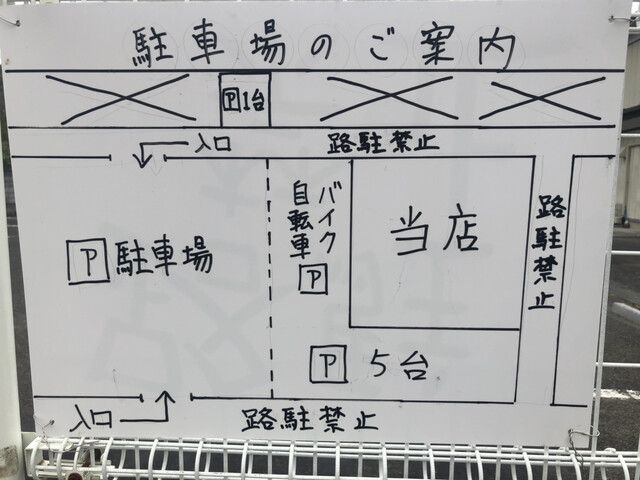 駐車場のご案内
P 1台
入口
路駐禁止
バイク
自転車
P
当店
路駐禁止
P 駐車場
P 5台
入口
路駐禁止